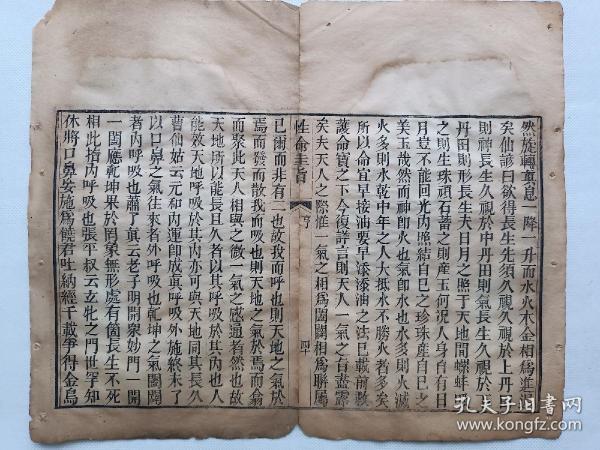 然旋轉眞息一降一升而水火木金相爲進退
矣仙諺曰欲得長生先須久視久視於上丹田
則神長生久視於中丹田則氣長生久視於下
丹田則形長生夫日月之照于天地間螺蚌吸
之則生珠頑石蓄之則產玉何況人身自有日
月豈不能回光內照結自己之珍珠產自己之
美玉哉然而神卽火也氣卽水也水多則火滅
火多則水乾中年之人大抵水不勝火者多矣
所以命宜早接油要早添添油之法已載前數
護命寶之下今復詳言則天人一氣之旨盡露
矣夫天人之際惟一氣之相爲闔闢相爲聯屬
性命圭旨
亨
四十
已爾而非有二也故我而呼也則天地之氣於
焉而發而散我而吸也則天地之氣於焉而翕
而聚此天人相與之微一氣之感通者然也故
天地所以能長且久者以其呼吸於其內也人
能效天地呼吸於其內亦可與天地同其長久
曹仙姑云元和內運卽成眞呼吸外施終未了
以口鼻之氣往來者外呼吸也乾坤之氣闔闢
者內呼吸也蕭了眞云老子明開衆妙門一開
一闔應乾坤果於罔象無形處有箇長生不死
根此指內呼吸也張平叔云玄牝之門世罕知
休將口鼻妄施爲饒君吐納經千載爭得金烏
孔夫子旧书网
www.kongfz.com